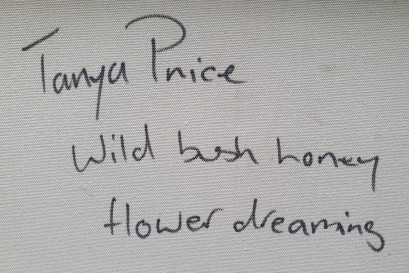 Tanya Price
Wild bush honey
flower dreaming